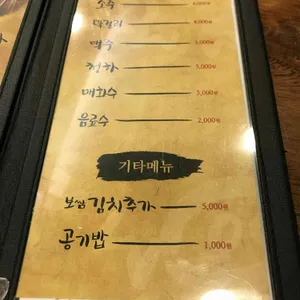 소주 4,000원
막걸리 4,000원
맥주 5,000원
청하 5,000원
매화수 5,000원
음료수 2,000원
기타메뉴
보쌈김치추가 5,000원
공기밥 1,000원